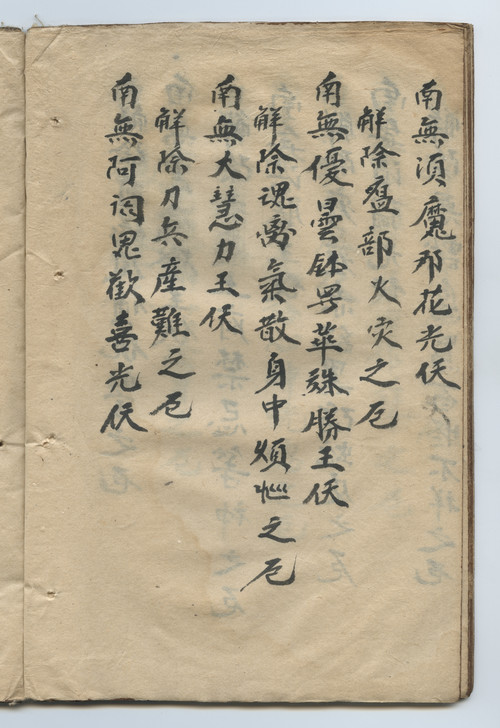 南無須魔那花光仸
解除瘟部火灾之厄
南無優曇鉢罗華殊勝王仸
解除魂离氣散身中煩惱之厄
南無大慧力王仸
解除刀兵產難之厄
南無阿閦毘歡喜光仸